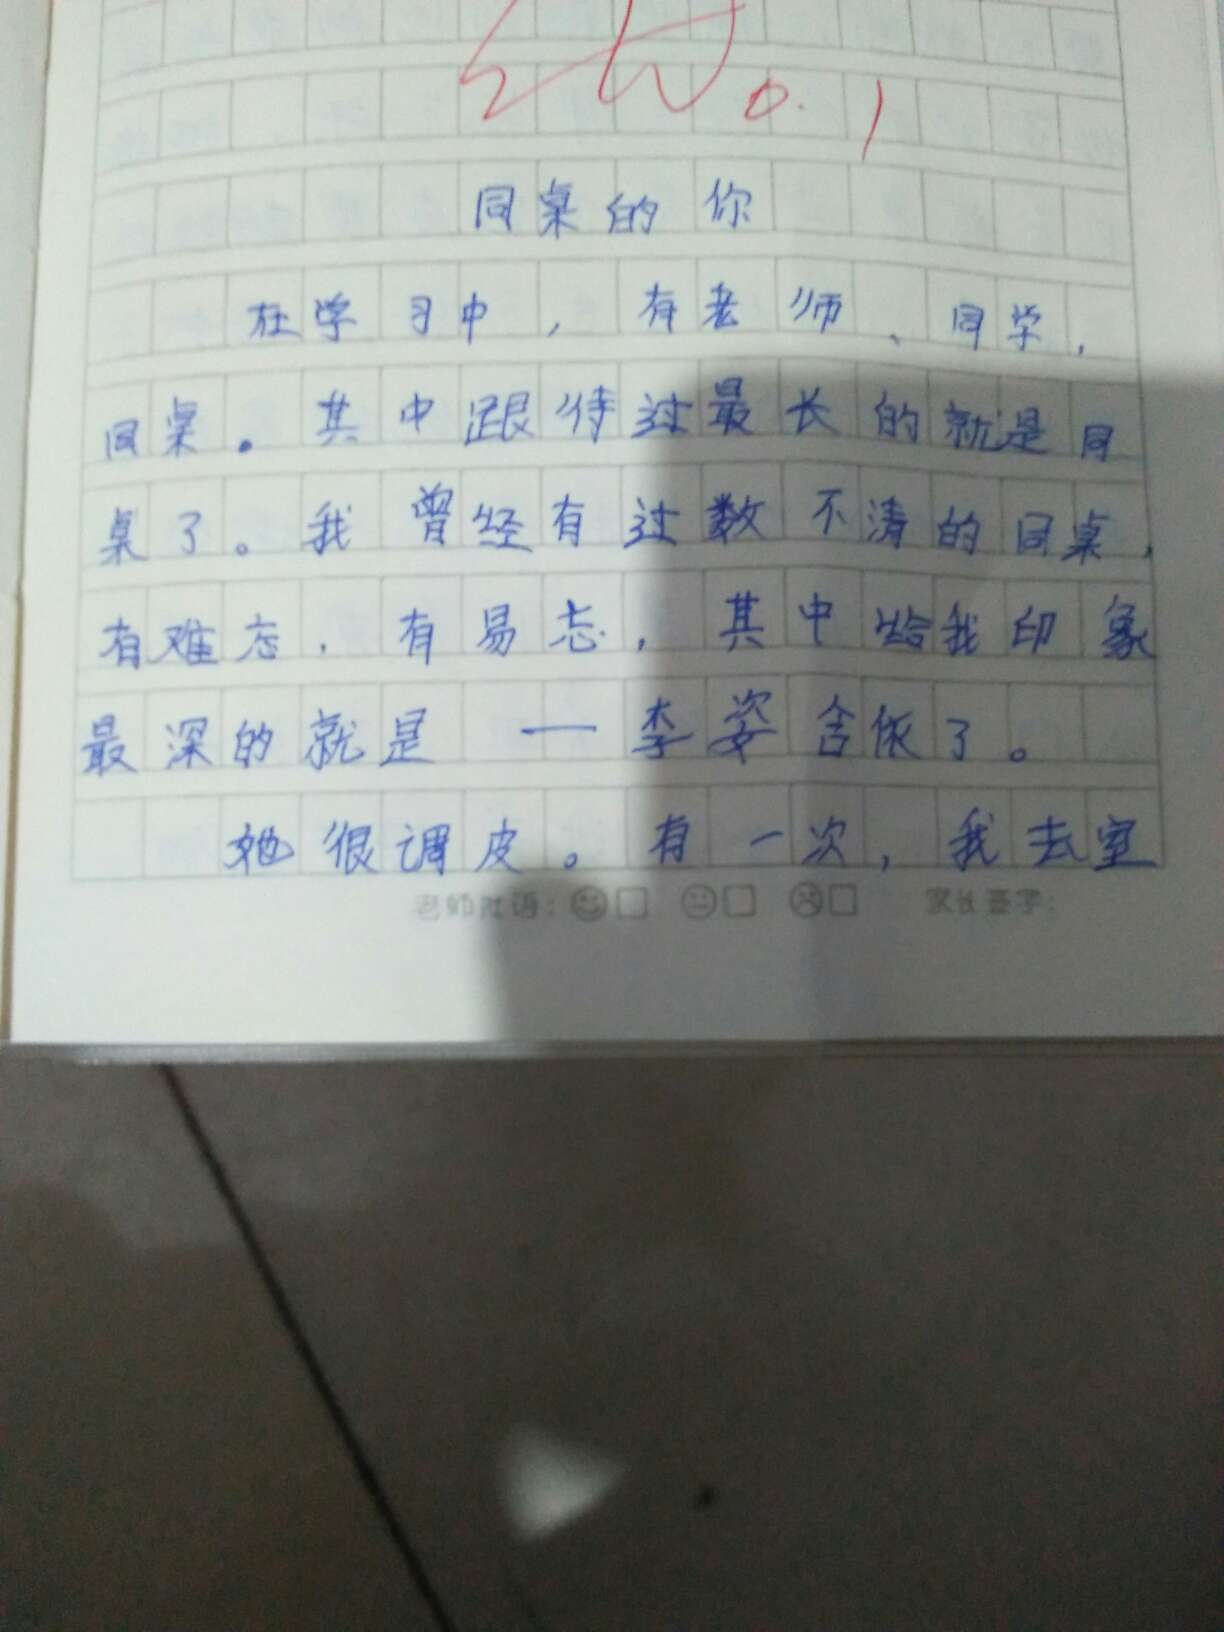 0.1
同桌的你
在学习中,有老师、同学,
同桌。其中跟待过最长的就是同
桌了。我曾经有过数不清的同桌,
有难忘,有易忘,其中给我印象
最深的就是 一李姿含依了。
她很调皮。有一次,我去室
老师批语: 家长签字: